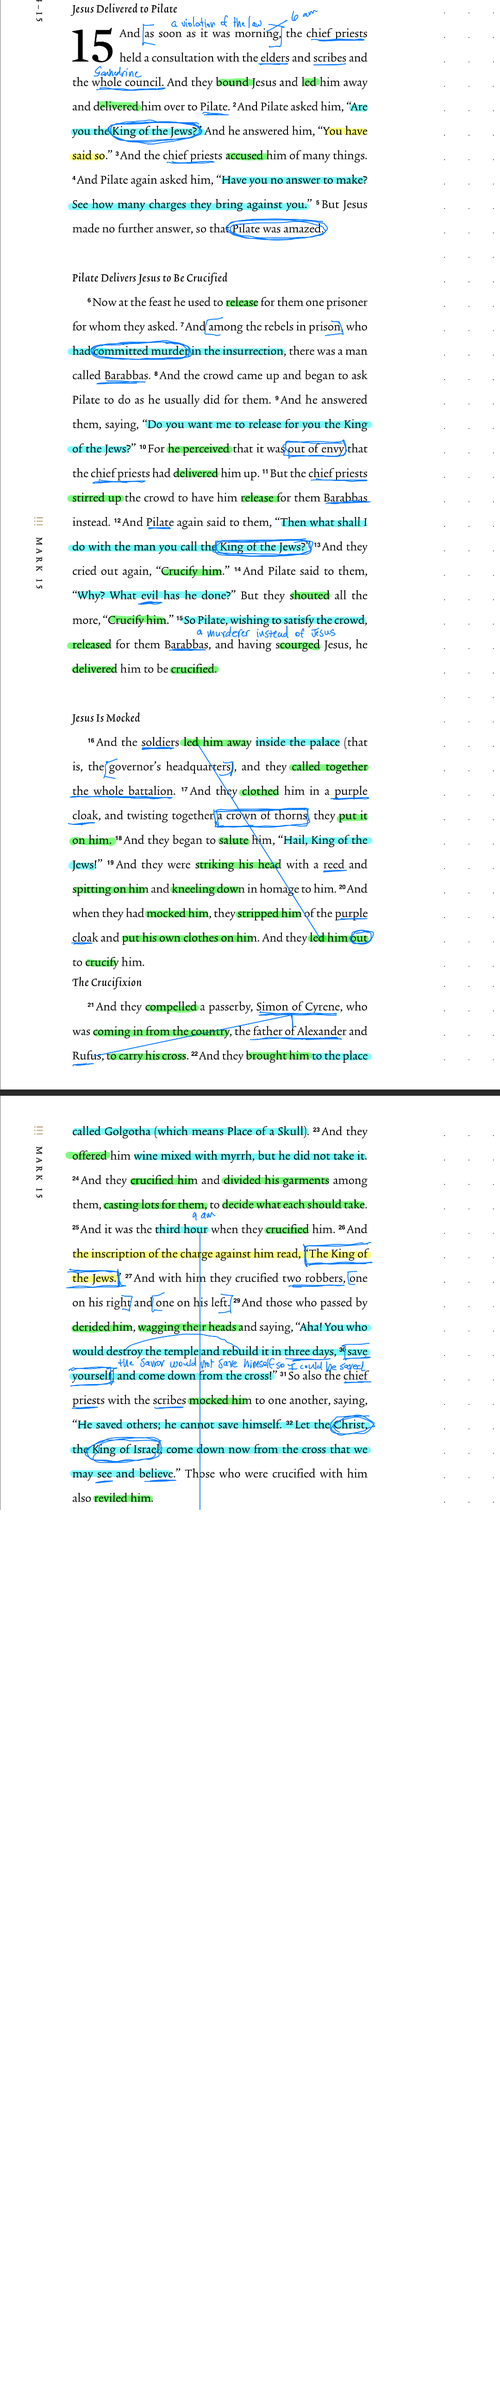 4–15
Jesus Delivered to Pilate
a violation of the law
6 am
15 And as soon as it was morning, the chief priests
held a consultation with the elders and scribes and
Sanhedrine
the whole council. And they bound Jesus and led him away
and delivered him over to Pilate. 2 And Pilate asked him, “Are
you the King of the Jews?” And he answered him, “You have
said so.” 3 And the chief priests accused him of many things.
4 And Pilate again asked him, “Have you no answer to make?
See how many charges they bring against you.” 5 But Jesus
made no further answer, so that Pilate was amazed.
Pilate Delivers Jesus to Be Crucified
6 Now at the feast he used to release for them one prisoner
for whom they asked. 7 And among the rebels in prison, who
had committed murder in the insurrection, there was a man
called Barabbas. 8 And the crowd came up and began to ask
Pilate to do as he usually did for them. 9 And he answered
them, saying, “Do you want me to release for you the King
of the Jews?” 10 For he perceived that it was out of envy that
the chief priests had delivered him up. 11 But the chief priests
stirred up the crowd to have him release for them Barabbas
MARK 15
instead. 12 And Pilate again said to them, “Then what shall I
do with the man you call the King of the Jews?” 13 And they
cried out again, “Crucify him.” 14 And Pilate said to them,
“Why? What evil has he done?” But they shouted all the
more, “Crucify him.” 15 So Pilate, wishing to satisfy the crowd,
a murderer instead of Jesus
released for them Barabbas, and having scourged Jesus, he
delivered him to be crucified.
Jesus Is Mocked
16 And the soldiers led him away inside the palace (that
is, the governor’s headquarters), and they called together
the whole battalion. 17 And they clothed him in a purple
cloak, and twisting together a crown of thorns, they put it
on him. 18 And they began to salute him, “Hail, King of the
Jews!” 19 And they were striking his head with a reed and
spitting on him and kneeling down in homage to him. 20 And
when they had mocked him, they stripped him of the purple
cloak and put his own clothes on him. And they led him out
to crucify him.
The Crucifixion
21 And they compelled a passerby, Simon of Cyrene, who
was coming in from the country, the father of Alexander and
Rufus, to carry his cross. 22 And they brought him to the place
MARK 15
called Golgotha (which means Place of a Skull). 23 And they
offered him wine mixed with myrrh, but he did not take it.
24 And they crucified him and divided his garments among
them, casting lots for them, to decide what each should take.
9 am
25 And it was the third hour when they crucified him. 26 And
the inscription of the charge against him read, “The King of
the Jews.” 27 And with him they crucified two robbers, one
on his right and one on his left. 29 And those who passed by
derided him, wagging their heads and saying, “Aha! You who
would destroy the temple and rebuild it in three days, 30 save
the Savior would not save himself so I could be saved
yourself, and come down from the cross!” 31 So also the chief
priests with the scribes mocked him to one another, saying,
“He saved others; he cannot save himself. 32 Let the Christ,
the King of Israel, come down now from the cross that we
may see and believe.” Those who were crucified with him
also reviled him.